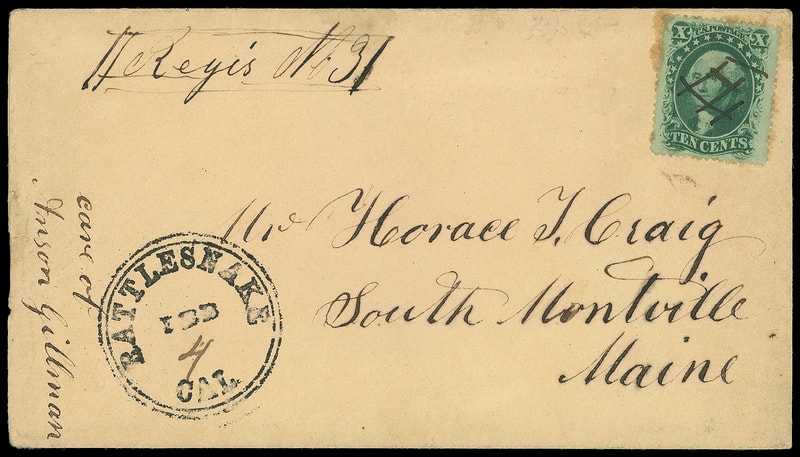 Regis No 31
X X
U.S. POSTAGE
TEN CENTS
Mr Horace J. Craig
South Montville
Maine
care of
Anson Gillman
RATTLESNAKE
FEB
4
CAL